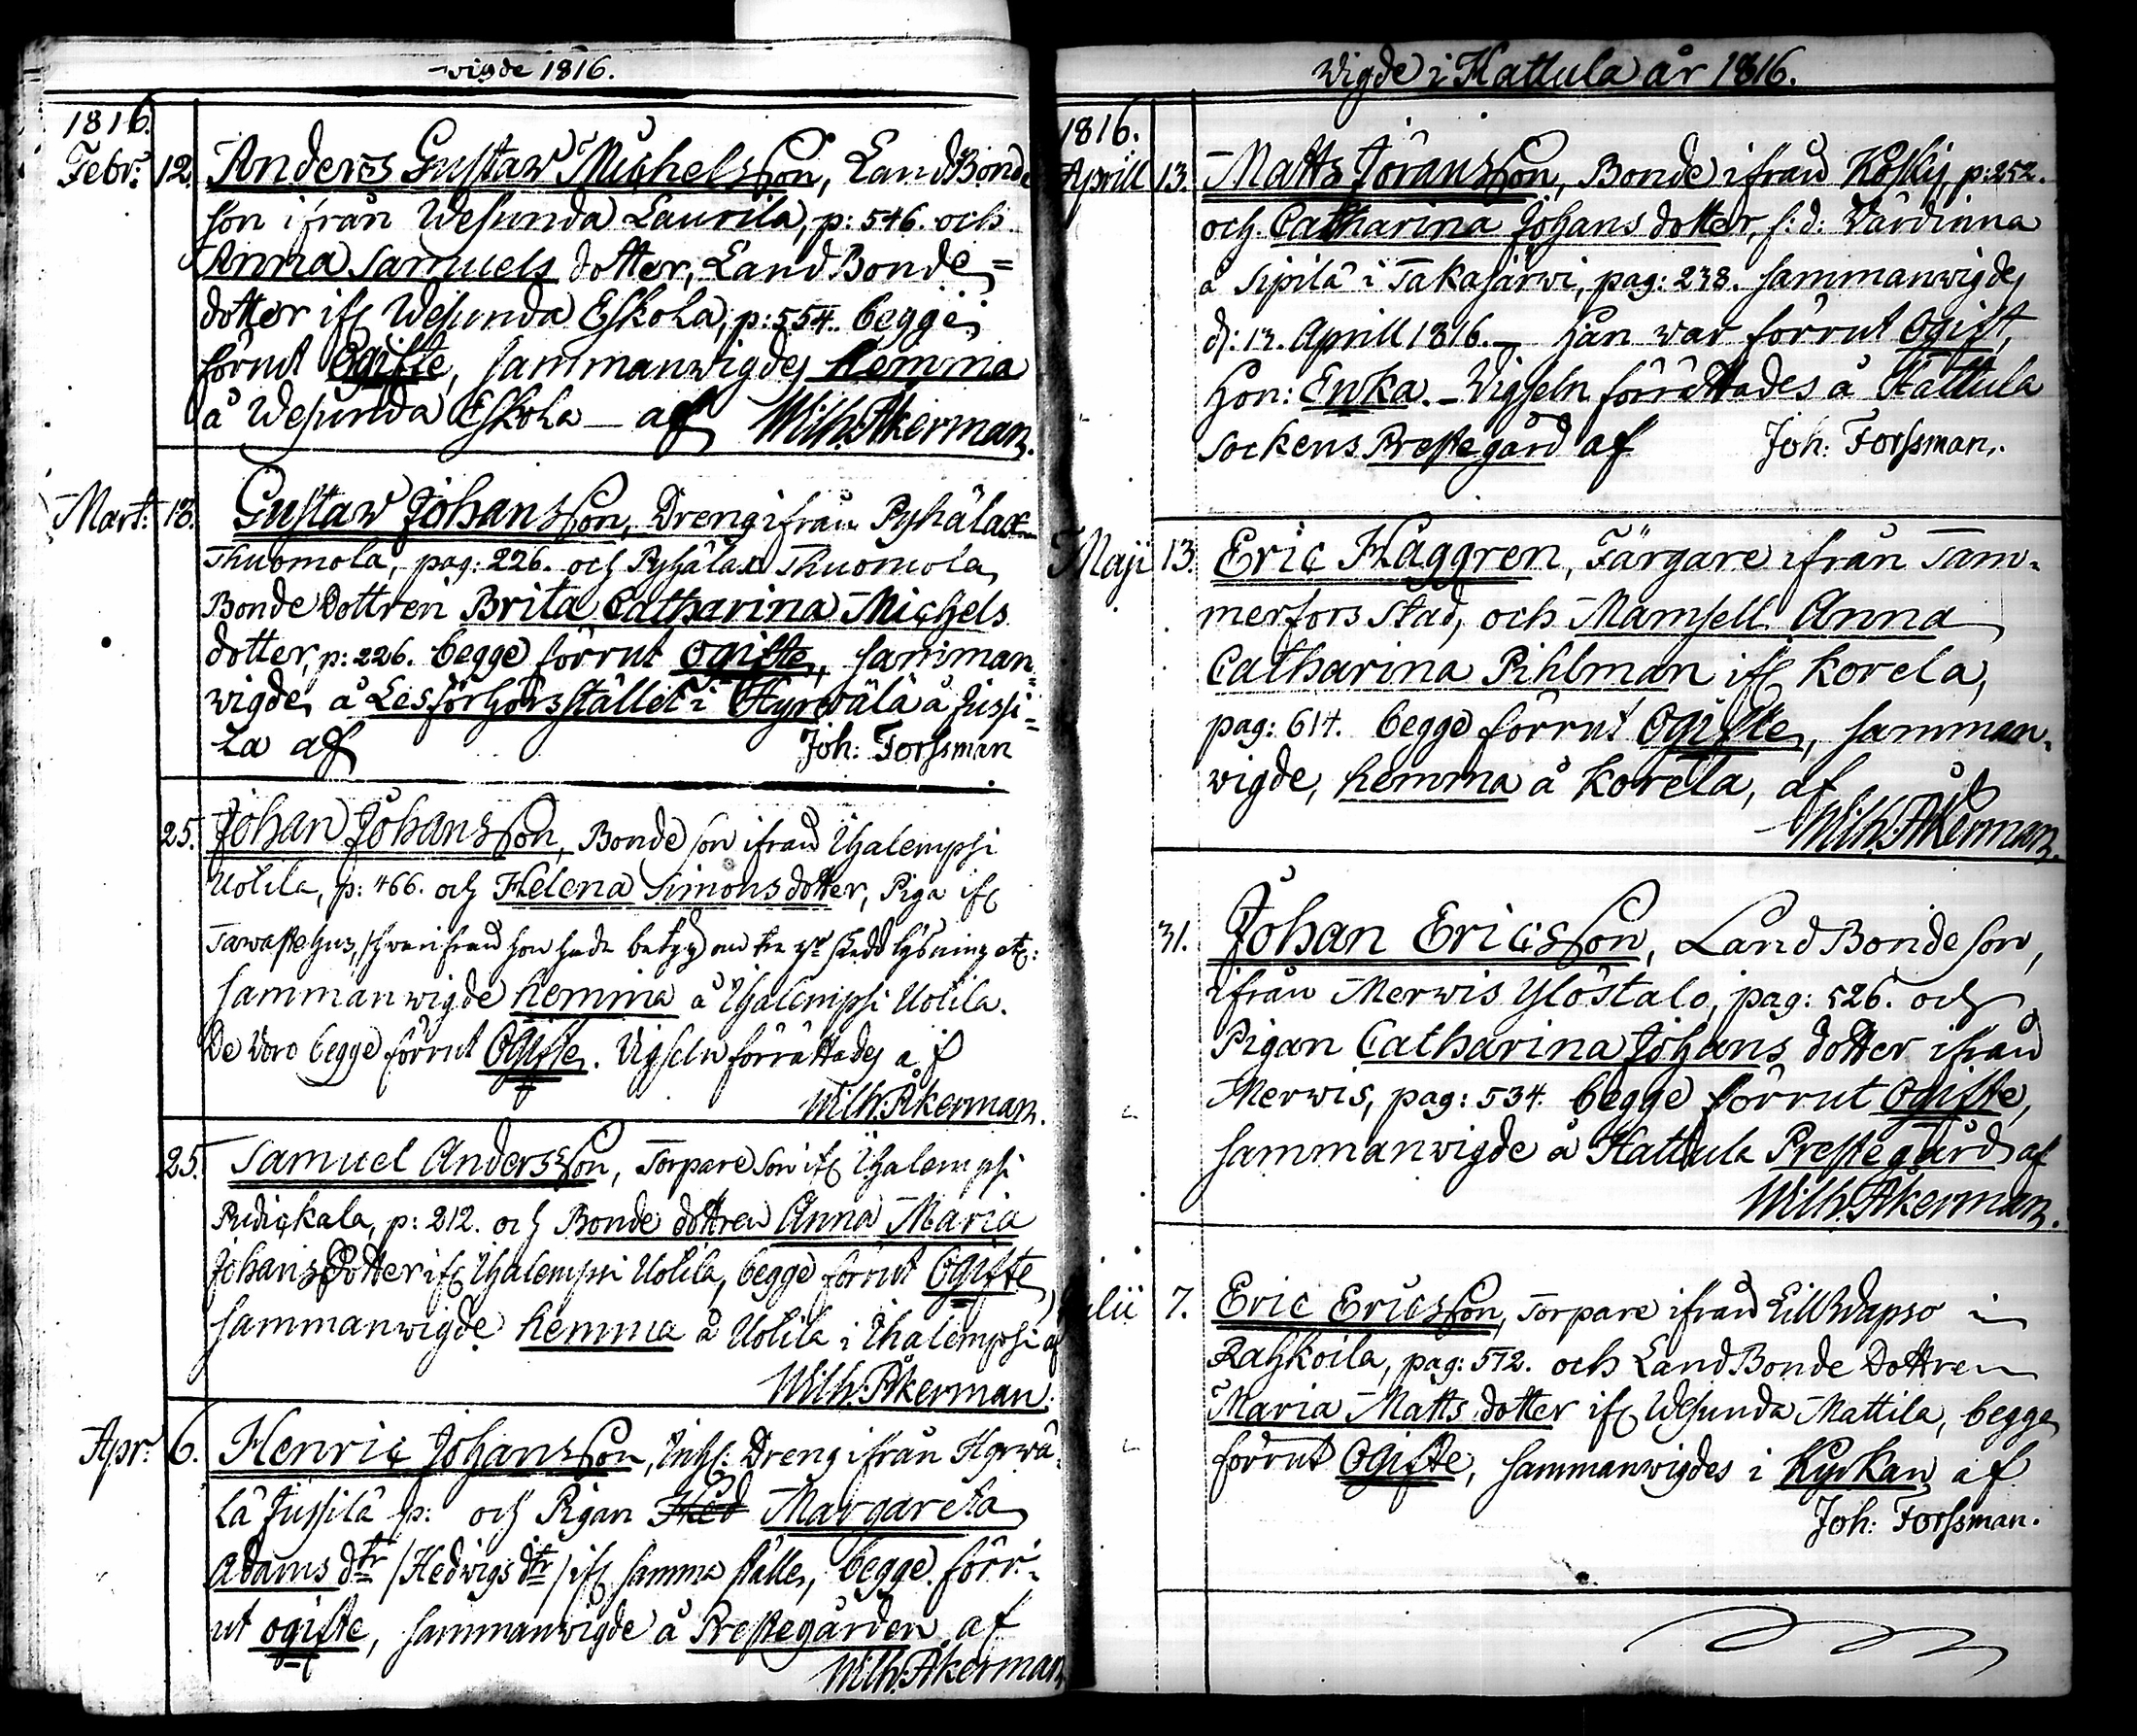 wigde 1816.
1816.
Febr: 12. Anders Gustaw Michelsson, LandBonde
son ifrån Wesunda Laurila, p: 546. och
Anna Samuels dotter, LandBonde=
dotter ifr Wesunda Eskola, p: 554. begge
förut Ogifte, sammanwigdes hemma
å Wesunda Eskola — af Wilh: Åkerman.
Mart: 18. Gustaw Johansson, Dreng ifrån Pyhälax
Thuomola, pag: 226. och Pyhälax Thuomola
Bonde Dottren Brita Catharina Michels
dotter, p: 226. begge förrut ogifte, samman=
wigde, å Läsförhörsstället i Hyrwälä å Jussi=
la af Joh: Forssman
25. Johan Johansson, Bonde son ifrån Ihalempsi
Uolila, p: 466. och Helena Simonsdotter, Piga ifr
Tawastehus, hwarifrån hon hade betyg om tre gr skedd lysning etc:
sammanwigde hemma å Ihalempsi Uolila.
De woro begge förrut Ogifte. Wigseln förrättades af
Wilh: Åkerman.
25. Samuel Andersson, Torpare son ifr Ihalempsi
p: 212. och Bonde dottren Anna Maria
Johans Dotter ifr Ihalempsi Uolila, begge förrut Ogifte,
sammanwigde hemma å Uolila i Ihalempsi af
Wilh: Åkerman.
Apr: 6. Henric Johansson, Inhs: Dreng ifrån Hyrwä=
lä Jussila p: och Pigan Hed Margareta
Adams dtr /Hedwigs dtr/ ifr samma ställe, begge förr=
ut ogifte, sammanwigde å Prestegården af
Wilh: Åkerman
Wigde i Hattula år 1816.
1816.
Aprill 13. Matts Jöransson, Bonde ifrån Koski, p: 252.
och Catharina Johans dotter, f: d: Wärdinna
å Sipilä i Takajärwi, pag: 238. sammanwigdes
d: 13. Aprill 1816. — Han war förrut Ogift,
Hon: Enka. — Wigseln förrättades å Hattula
Sockens Prestegård af Joh: Forssman.
Maji 13. Eric Häggren, Färgare ifrån Tam=
merfors Stad, och Mamsell Anna
Catharina Pihlman ifr Korela,
pag: 614. begge förrut Ogifte, samman=
wigde, hemma å Korela, af
Wilh: Åkerman.
31. Johan Ericsson, LandBonde son,
ifrån Merwis Ylöstalo, pag: 526. och
Pigan Catharina Johans dotter ifrån
Merwis, pag: 534. begge förrut ogifte,
sammanwigde å Hattula Prestegård af
Wilh: Åkerman.
Julii 7. Eric Ericsson, Torpare ifrån Lill Wapso i
Rahkoila, pag: 572. och LandBonde Dottren
Maria Matts dotter ifr Wesunda Mattila, begge
förrut Ogifte, sammanwigdes i Kyrkan af
Joh: Forssman.